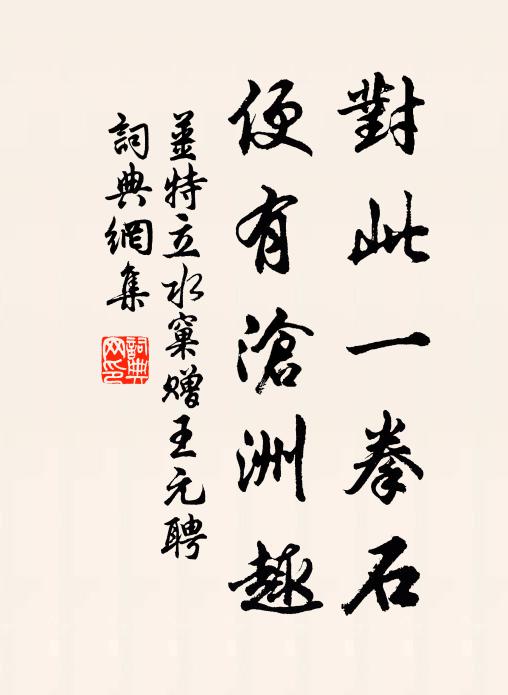 對此一拳石
便有滄洲趣
姜特立水窠贈王元聘
詞典網集
詞典網印